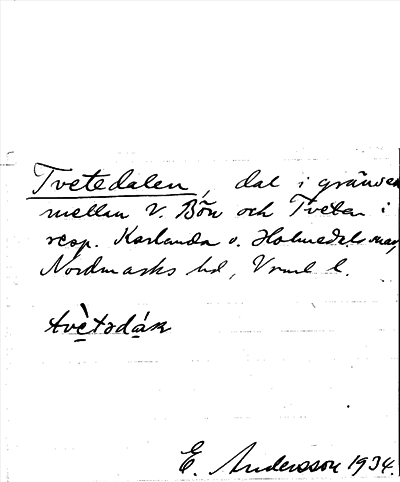 Tvetedalen, dal i gränsen
mellan V. Bön och Tvetan i
resp. Karlanda o. Holmedals snr,
Nordmarks hd, Vrml l.
tvètədák
E. Andersson 1934.